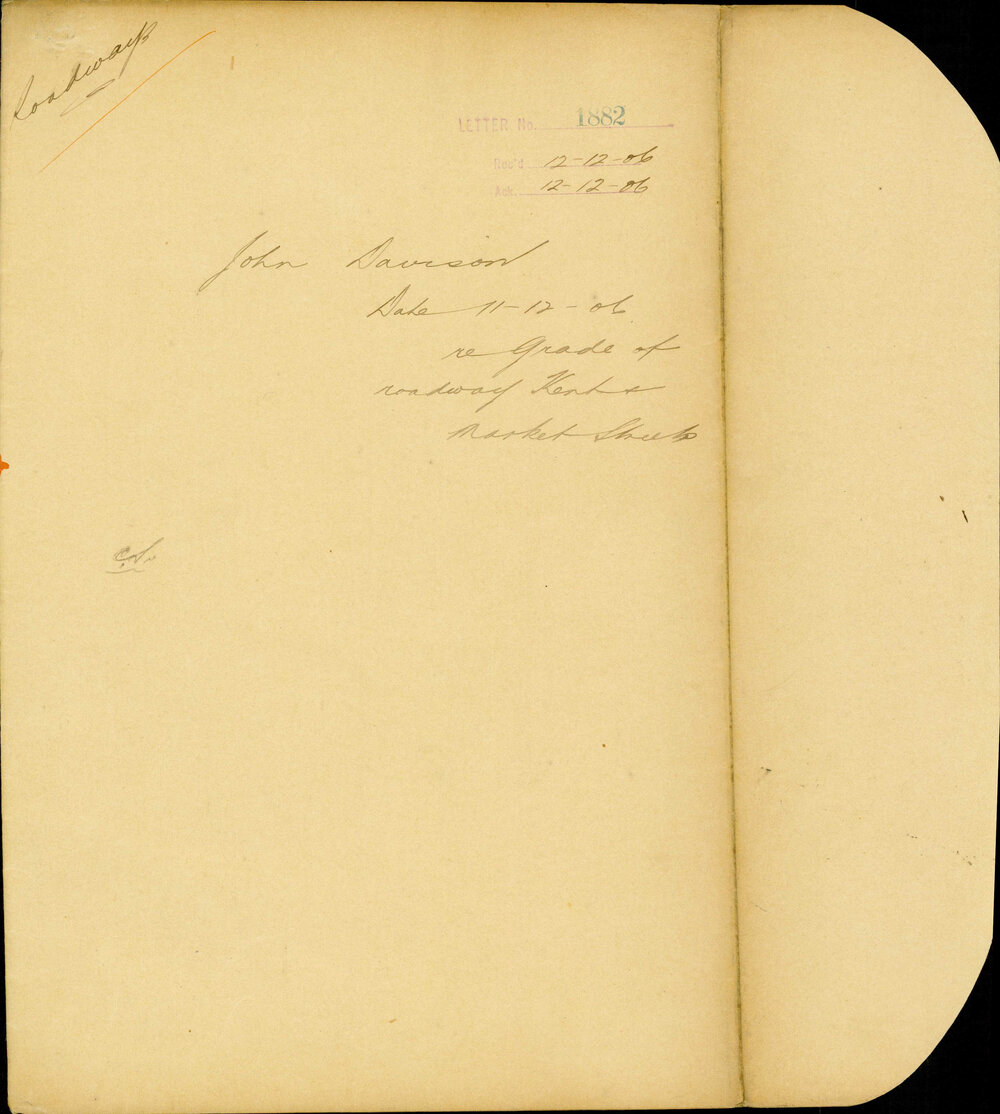 Roadways
LETTER No. 1882
Rec'd 12-12-06
Ack. 12-12-06
John Davison
Date 11-12-06
re Grade of
roadway Kent &
Market Streets